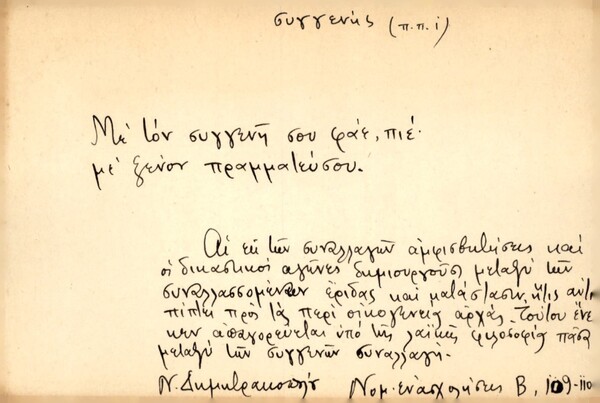 συγγενής (π.π.ι)
Μὲ τὸν συγγενῆ σου φάε, πιέ·
μὲ ξένον πραμματεύσου.
Αἱ ἐκ τῶν συναλλαγῶν ἀμφισβητήσεις καὶ
οἱ δικαστικοὶ ἀγῶνες δημιουργοῦσι μεταξὺ τῶν
συναλλασσομένων ἔριδας καὶ κατάστασιν, ἥτις ἀντι-
πίπτει πρὸς τὰς περὶ οἰκογενείας ἀρχάς. Τούτου ἕνε
κεν ἀπαγορεύεται ὑπὸ τῆς λαϊκῆς φιλοσοφίας πᾶσα
μεταξὺ τῶν συγγενῶν συναλλαγή.
Ν. Δημητρακοπούλου Νομ. ἐνασχολήσεις Β, 109-110